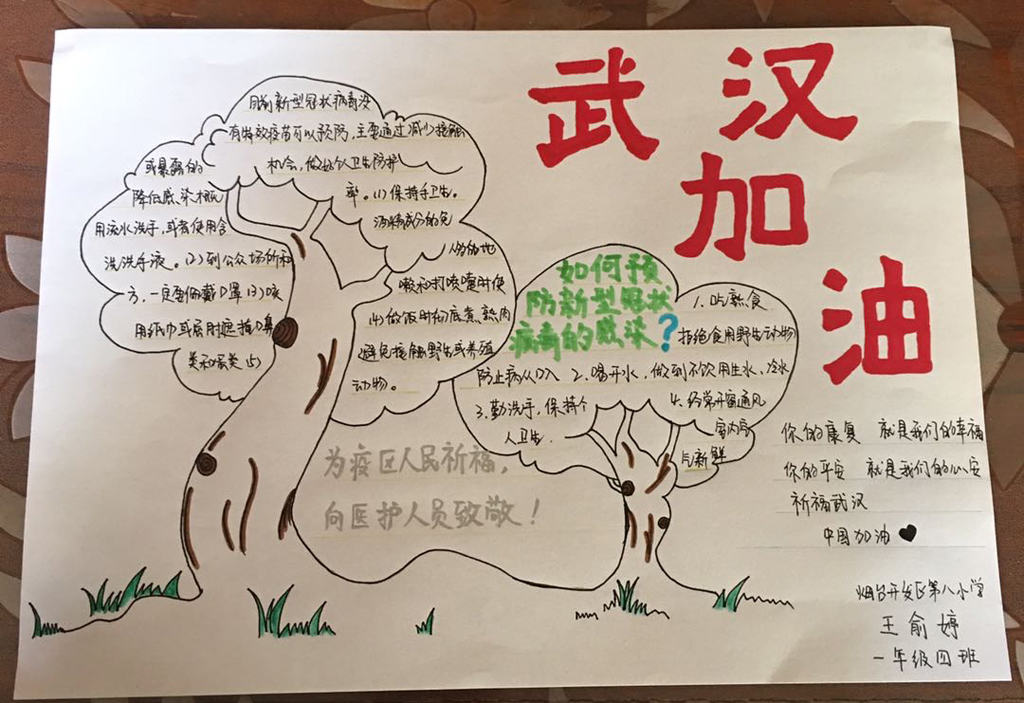 武汉
加
油
目前新型冠状病毒没
有特效疫苗可以预防,主要通过减少接触
或暴露的
机会,做好个人卫生防护
降低感染概
率。(1)保持手卫生。
用流水洗手,或者使用含
酒精成分的免
洗洗手液。(2)到公众场所和
人多的地
方,一定要佩戴口罩(3)咳
嗽和打喷嚏时使
用纸巾或屈肘遮掩口鼻
(4)做饭时彻底煮熟肉
类和蛋类(5)
避免接触野生或养殖
动物。
如何预
防新型冠状
病毒的感染?
1.吃熟食
拒绝食用野生动物
防止病从口入 2.喝开水,做到不饮用生水、冷水
3.勤洗手,保持个
人卫生.
4.经常开窗通风
室内空
气新鲜
为疫区人民祈福,
向医护人员致敬!
你的康复 就是我们的幸福
你的平安 就是我们的心安
祈福武汉
中国加油
烟台开发区第八小学
王俞婷
一年级四班